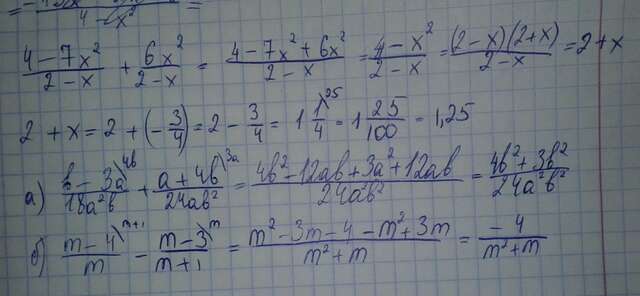 4 - x²
(4 - 7x²)/(2 - x) + (6x²)/(2 - x) = (4 - 7x² + 6x²)/(2 - x) = (4 - x²)/(2 - x) = ((2 - x)(2 + x))/(2 - x) = 2 + x
2 + x = 2 + (-3/4) = 2 - 3/4 = 1 1/4\25 = 1 25/100 = 1,25
а) (b - 3a\4b)/(18a²b) + (a + 4b\3a)/(24ab²) = (4b² - 12ab + 3a² + 12ab)/(24a²b²) = (4b² + 3b²)/(24a²b²)
б) (m - 4\m+1)/m - (m - 3\m)/(m + 1) = (m² - 3m - 4 - m² + 3m)/(m² + m) = (-4)/(m² + m)